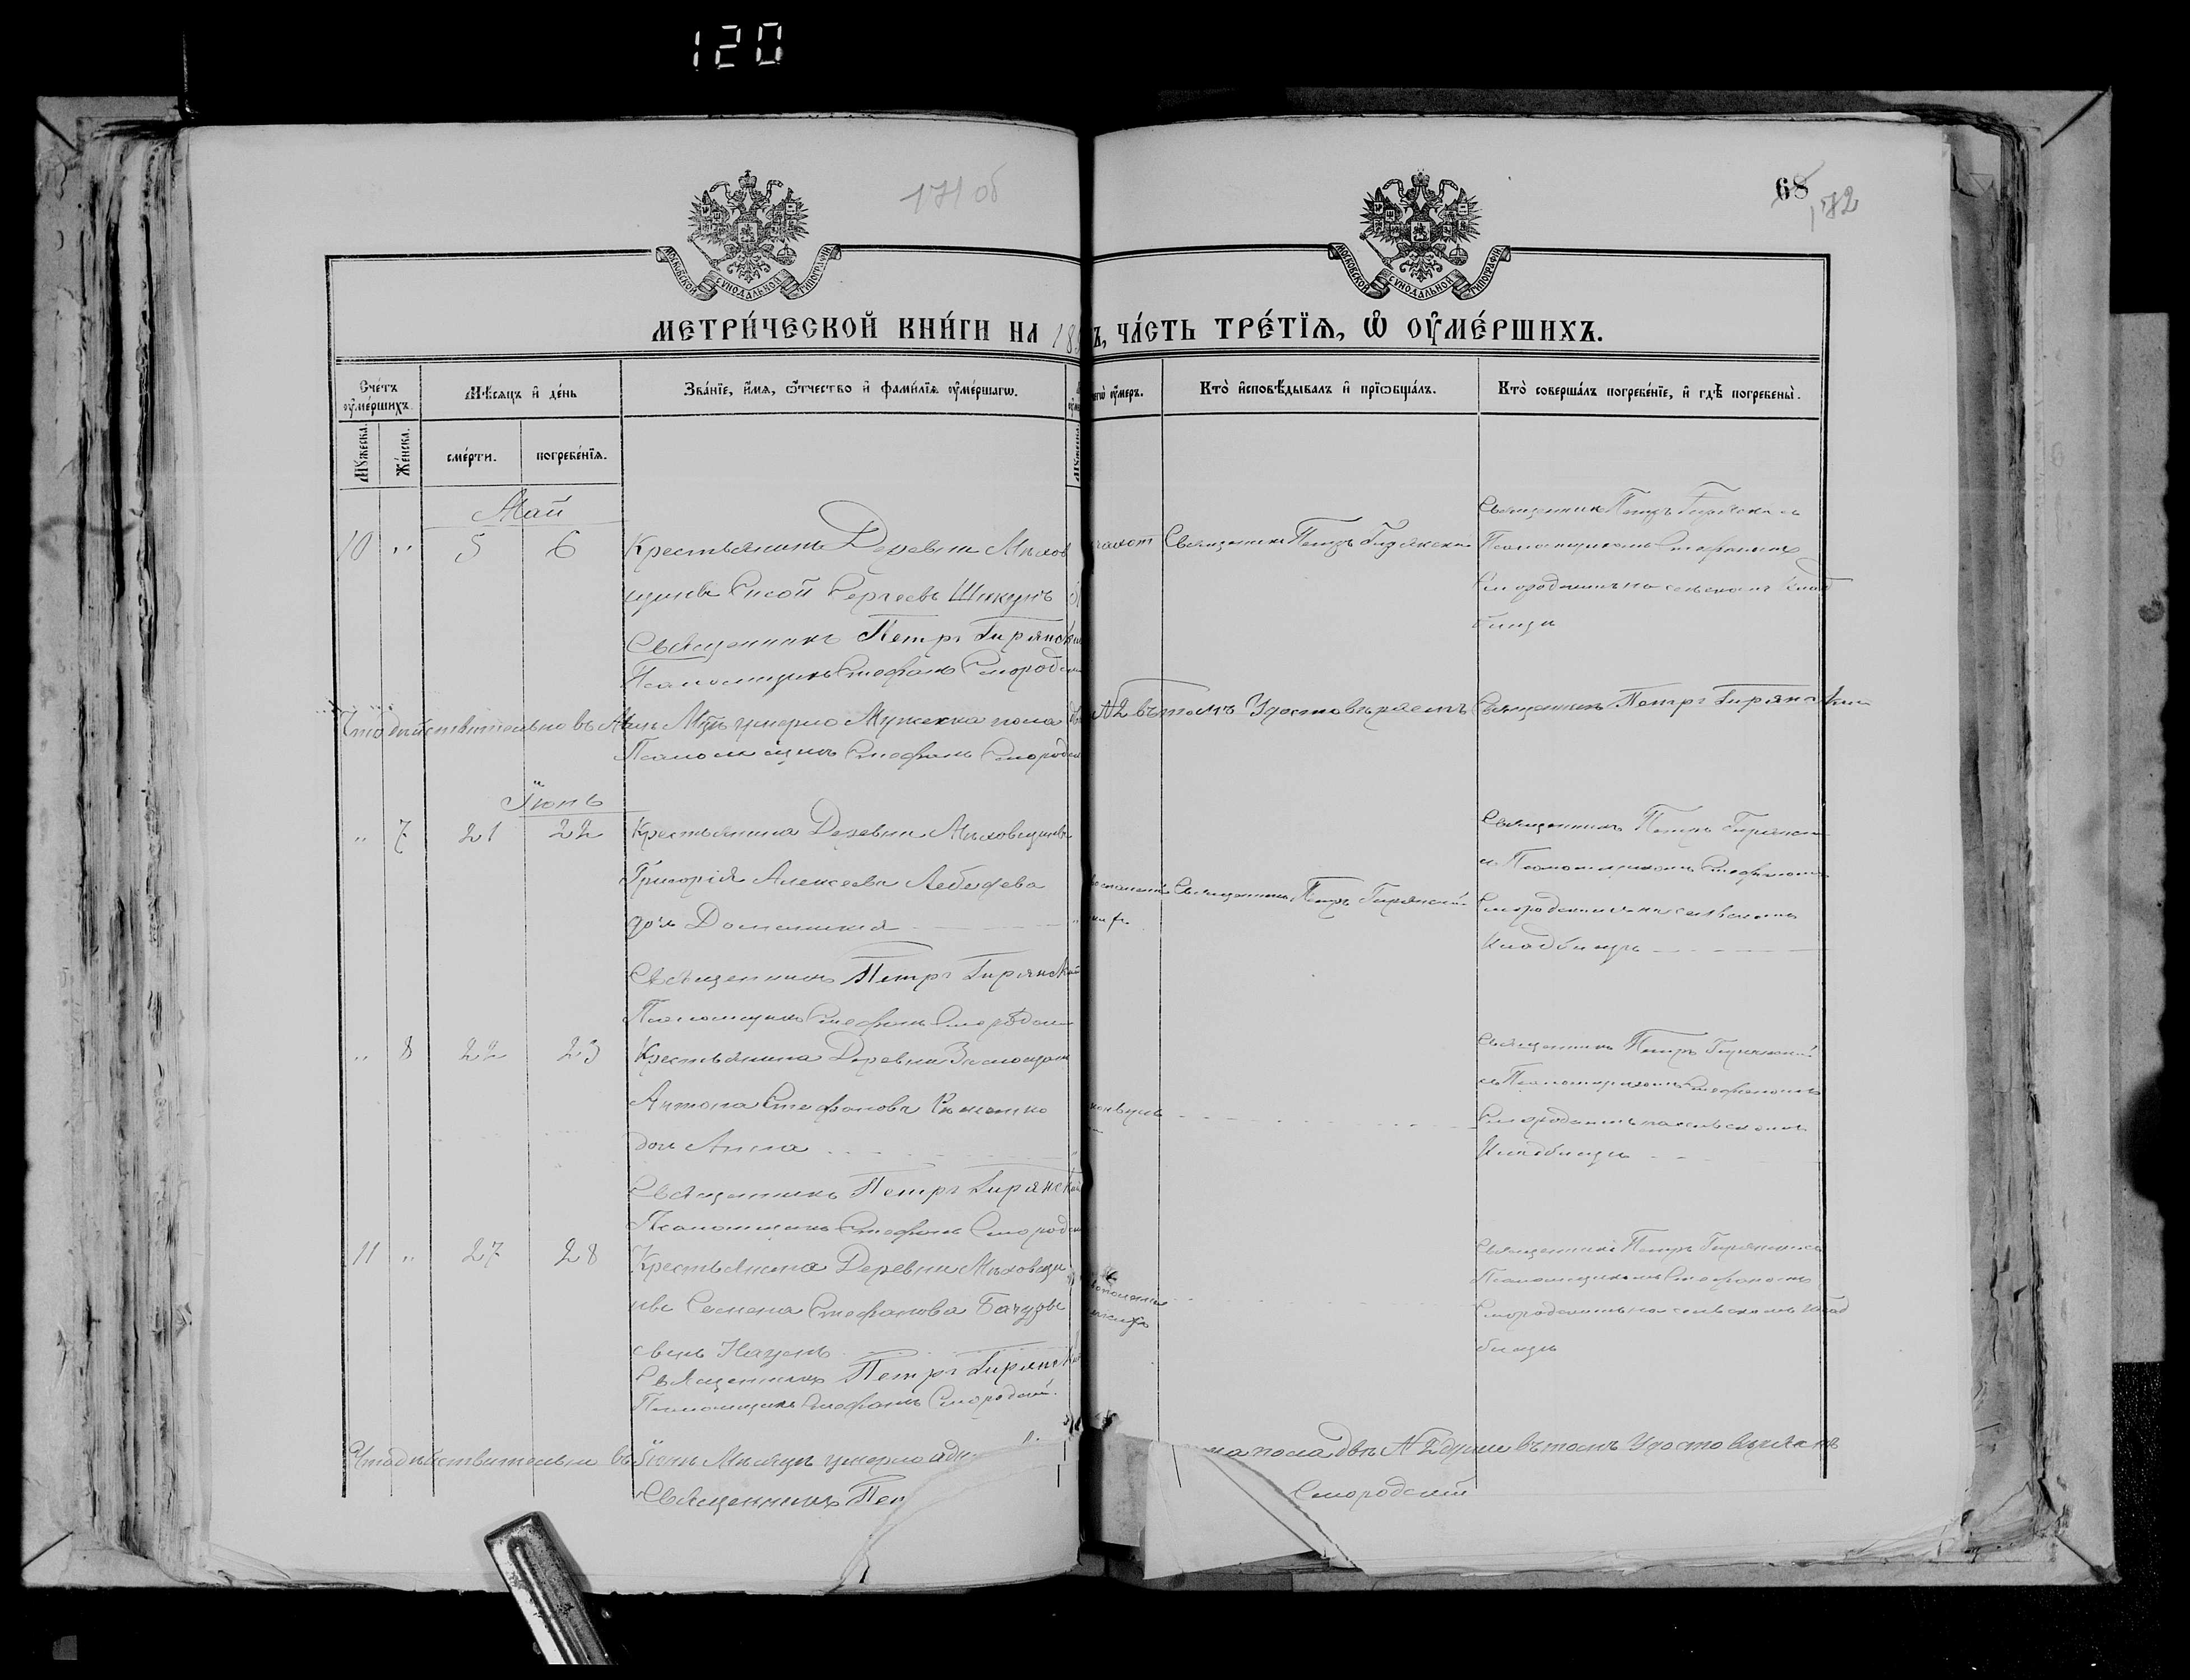 120
171 об
68
172
МОСКОВСКОЙ СѴНОДАЛЬНОЙ ТИПОГРАФІИ
МОСКОВСКОЙ СѴНОДАЛЬНОЙ ТИПОГРАФІИ
МЕТРИ́ЧЕСКОЙ КНИ́ГИ НА 18
Ъ, ЧА́СТЬ ТРЕ́ТЇѦ, Ѡ҆ ОУ҆МЕ́РШИХЪ.
Счетъ оумершихъ.
Мꙋжеска.
Женска.
Мѣсѧцъ и день
смерти.
погребенїѧ.
Званїе, имѧ, ѻтчество и фамилїѧ оумершагѡ.
Мꙋжеска
чегѡ оумеръ.
Кто исповѣдывалъ и прїѡбщалъ.
Кто совершалъ погребенїе, и гдѣ погребены.
Май
10 " 5 6 Крестьянинъ Деревни Мѣхов
щины Сисой Сергеевъ Шикунъ
Священникъ Петръ Гирянскій
Псаломщикъ Стефанъ Смородскій
Священникъ Петръ Гирянскій
Священникъ Петръ Гирянскій съ
Псаломщикомъ Стефаномъ
Смородскимъ на сельскомъ клад
бищѣ
Что дѣйствительно въ Маѣ М-цѣ умерло Мужеска пола
№ въ томъ Удостовѣряемъ Священникъ Петръ Гирянскій
Псаломщикъ Стефанъ Смородскій
Іюнь
" 7 21 22 Крестьянина Деревни Мѣховщины
Григорія Алексеева Лебедева
дочь Домникія
Священникъ Петръ Гирянскій
Псаломщикъ Стефанъ Смородскій
Священникъ Петръ Гирянскій
Священникъ Петръ Гирянскій
съ Псаломщикомъ Стефаномъ
Смородскимъ на сельскомъ
Кладбищѣ
" 8 22 23 Крестьянина Деревни
Антона Стефанова
дочь Анна
Священникъ Петръ Гирянскій
Псаломщикъ Стефанъ Смородскій
Священникъ Петръ Гирянскій
съ Псаломщикомъ Стефаномъ
Смородскимъ на сельскомъ
Кладбищѣ
11 " 27 28 Крестьянина Деревни Мѣховщи
ны Семена Стефанова
сынъ Наумъ
Священникъ Петръ Гирянскій
Псаломщикъ Стефанъ Смородскій.
Священникъ Петръ Гирянскій съ
Псаломщикомъ Стефаномъ
Смородскимъ на сельскомъ клад
бищѣ
Что дѣйствительно въ Іюнѣ Мѣсяцѣ умерло
пола двѣ № 2 души въ томъ Удостовѣряемъ
Священникъ Пет
Смородскій